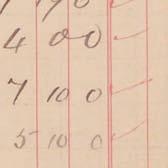 4 0 0
7 10 0
5 10 0